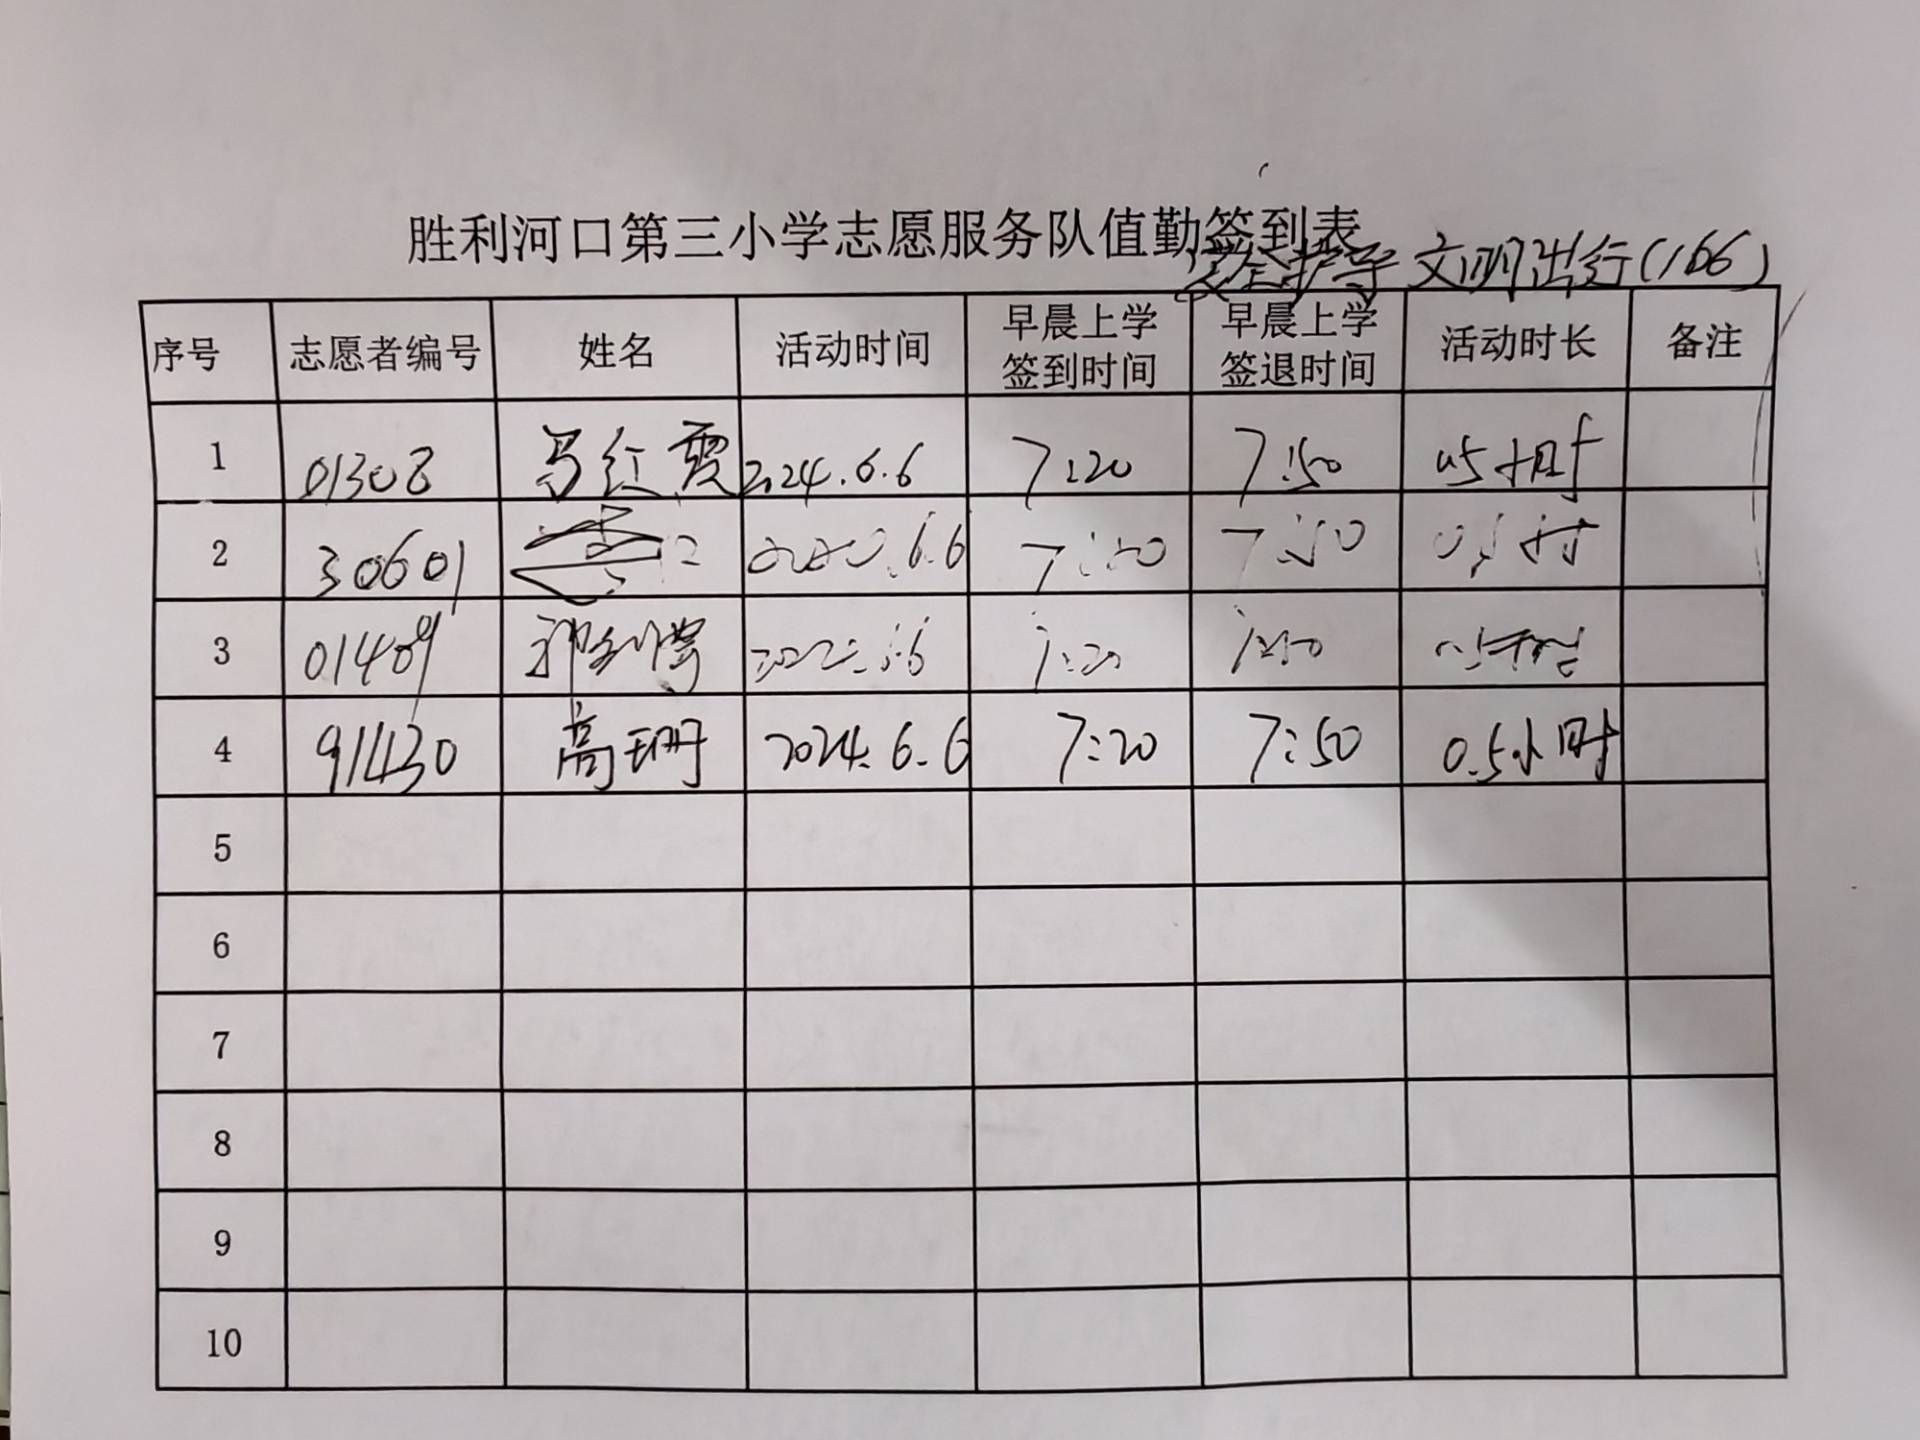 胜利河口第三小学志愿服务队值勤签到表
安全护学 文明出行(166)
序号 志愿者编号 姓名 活动时间 早晨上学签到时间 早晨上学签退时间 活动时长 备注
1 01308 马红霞 2024.6.6 7:20 7:50 0.5小时
2 30601 6.6 7:50
3 01409 7:20 7:50
4 91430 高珊 2024.6.6 7:20 7:50 0.5小时
5
6
7
8
9
10